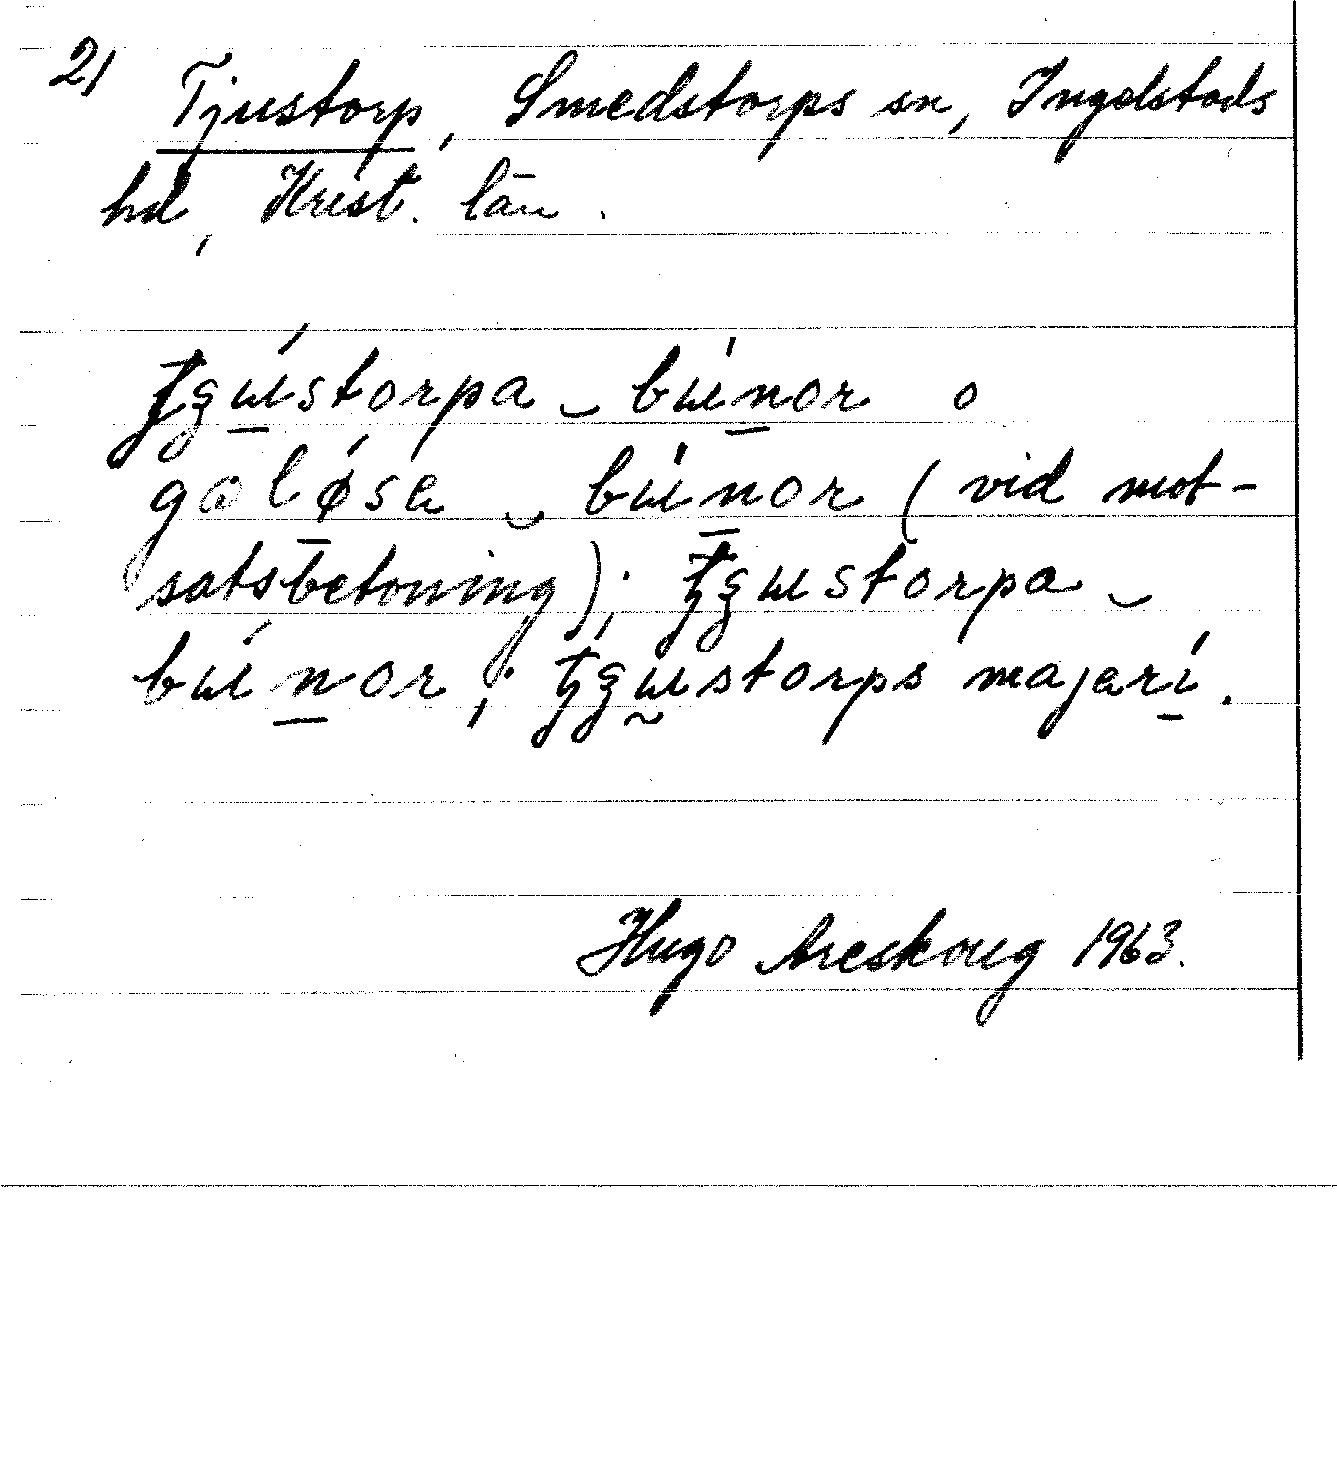 2/ Tjustorp, Smedstorps sn, Ingelstads
hd, Krist. län.
ƫʂɯ́storpa ‿ bɯ́nor o
galǿsa ‿ bɯ́nor (vid mot-
satsbetoning); ƫʂɯstorpa ‿
bɯ́nor; ƫʂɯstorps majarí.
Hugo Areskoug 1963.